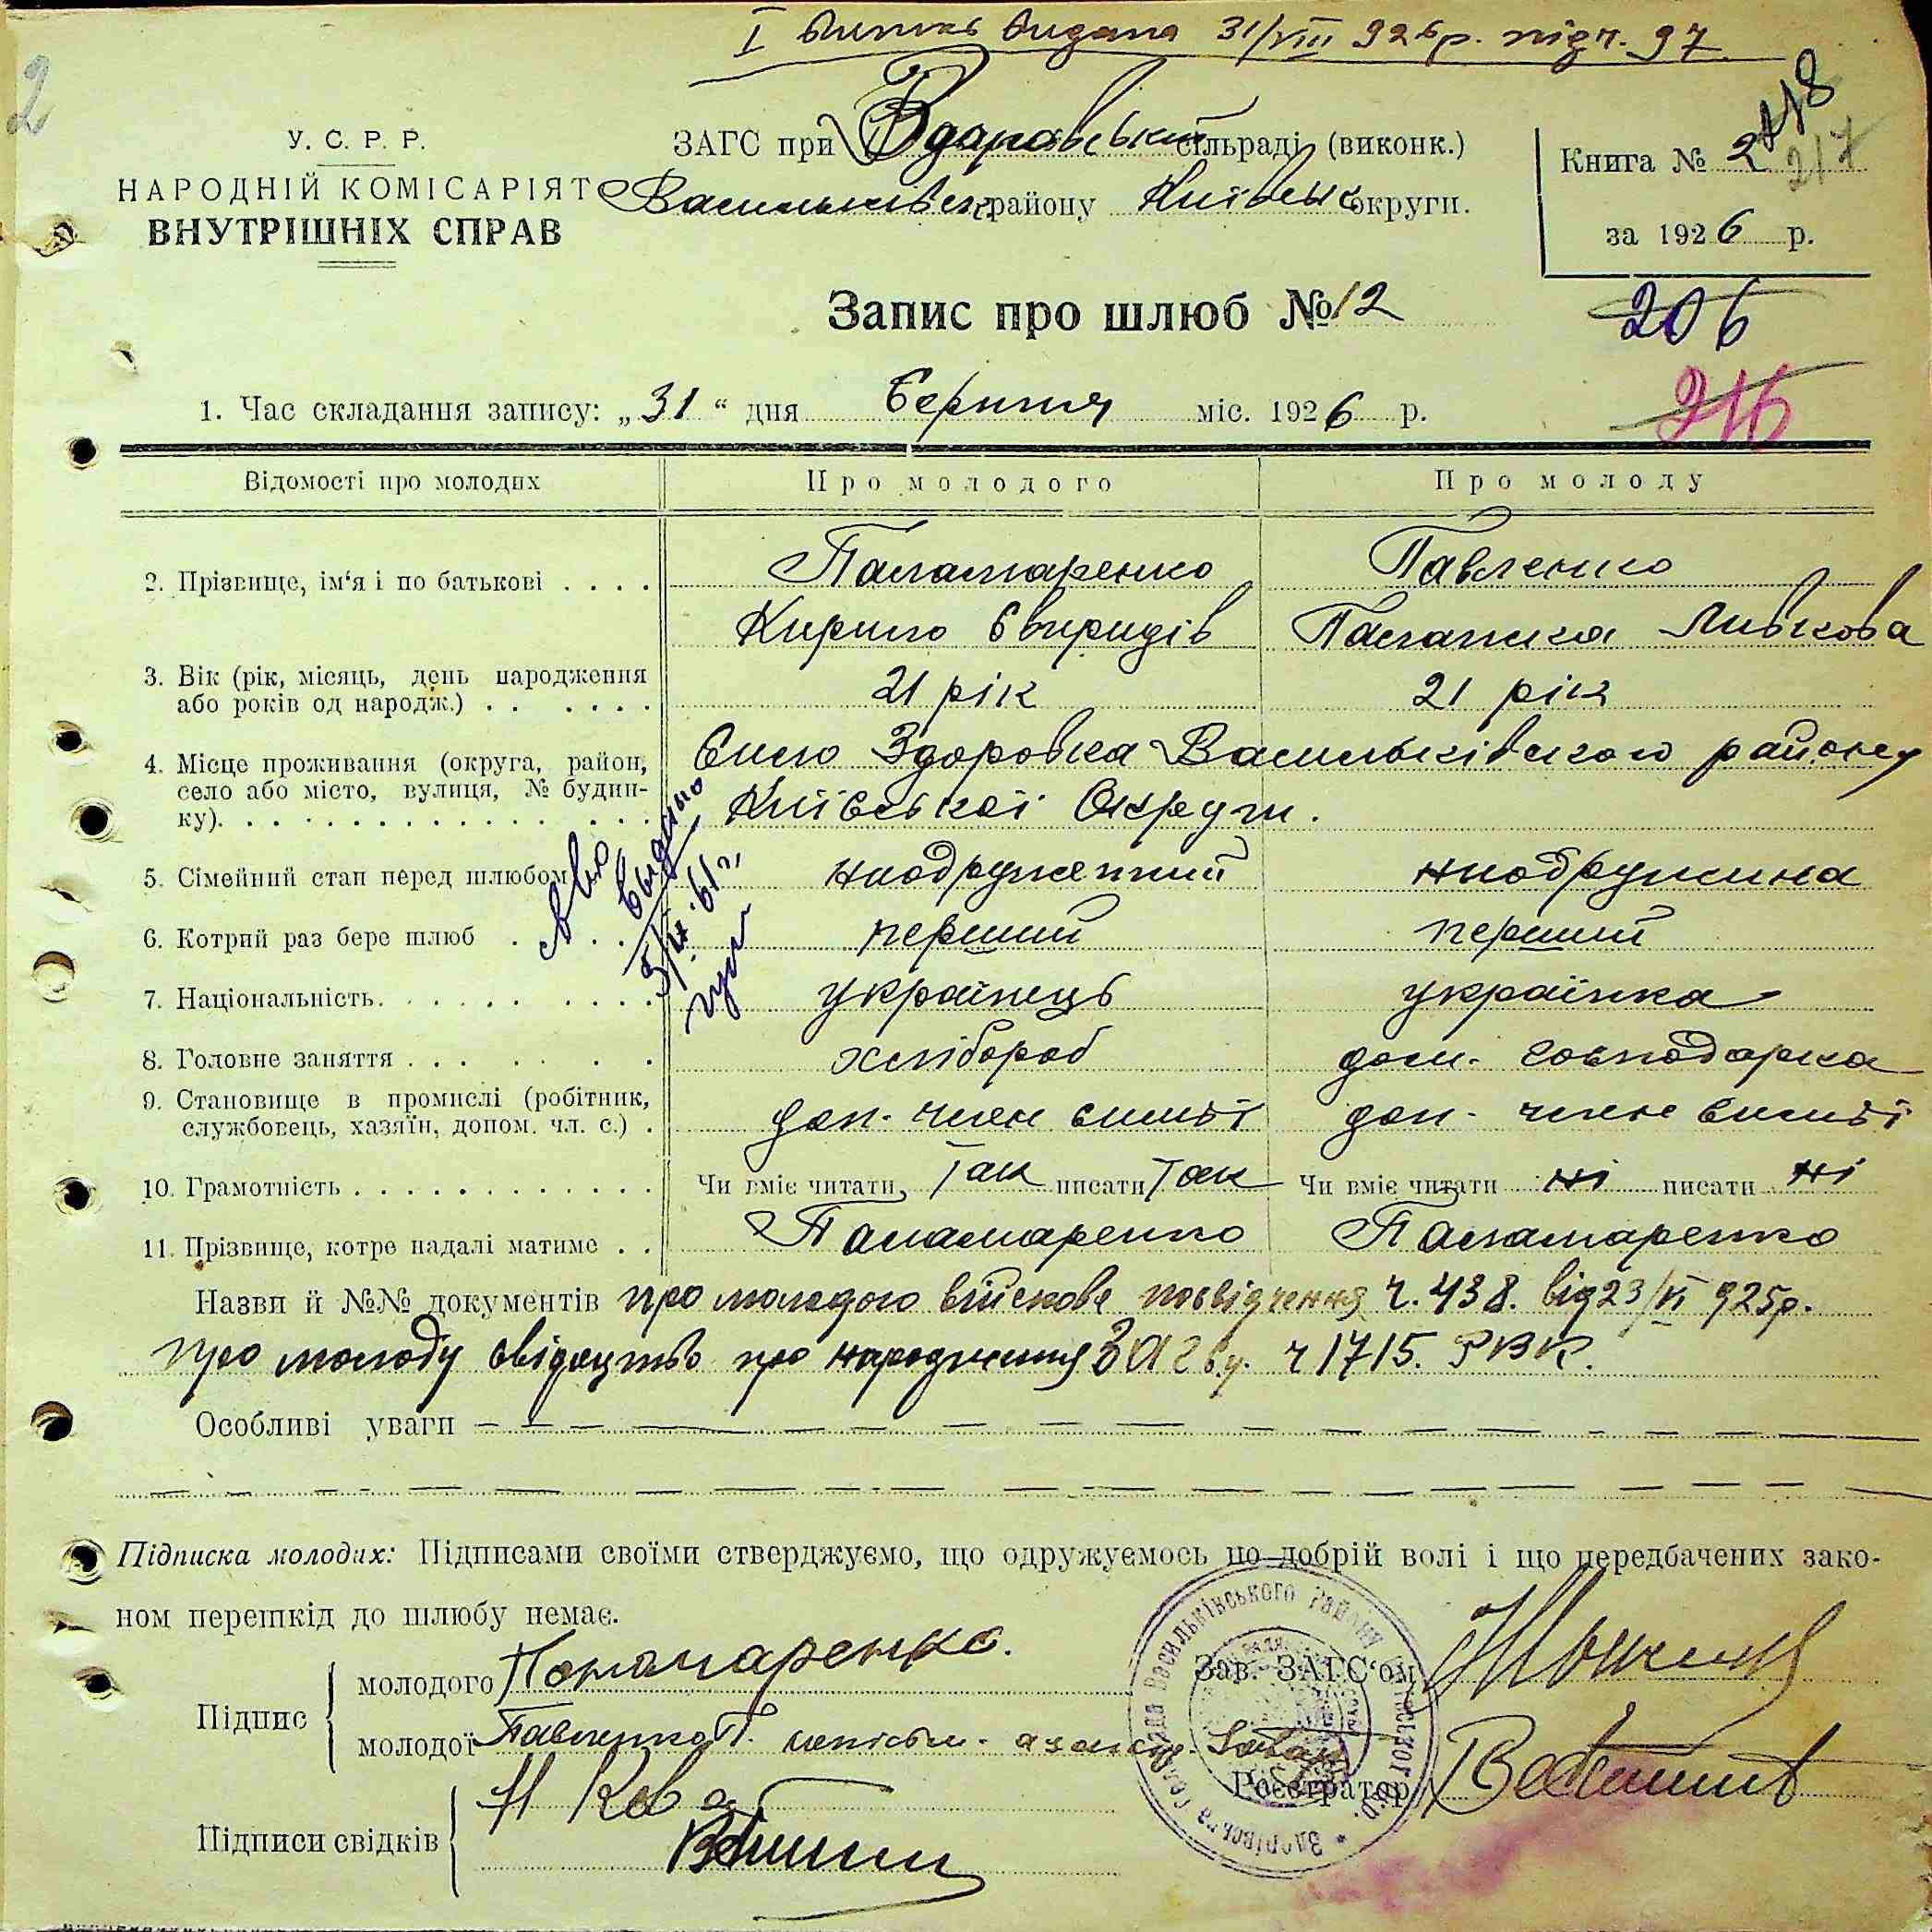 I Виписъ видана 31/VIII 926р. під ч. 97
2
У. С. Р. Р.
НАРОДНІЙ КОМІСАРІЯТ
ВНУТРІШНІХ СПРАВ
ЗАГС при Здаравській сільраді (виконк.)
Васильківськ району Київськ округи.
Книга № 2
218
217
за 1926 р.
Запис про шлюб № 12
206
216
1. Час складання запису: „31“ дня Серпня міс. 1926 р.
Відомості про молодих Про молодого Про молоду
2. Прізвище, ім‘я і по батькові . . . . Паламаренко Павленко
Кирило Свиридів Палажка Левкова
3. Вік (рік, місяць, день народження 21 рік 21 рік
або років од народж.) . . . . . .
4. Місце проживання (округа, район, Село Здоровка Васильківського району
село або місто, вулиця, № будин-
ку). . . . . . . . . . . . . . . Київської Округи.
5. Сімейний стап перед шлюбом неодружений неодружина
6. Котрий раз бере шлюб . . . . перший перший
7. Національність. . . . . . . . . українець українка
8. Головне заняття . . . . . . . хлібороб дом. господарка
9. Становище в промислі (робітник, доп. член симьї доп. член симьї
службовець, хазяїн, допом. чл. с.) .
10. Грамотність . . . . . . . . . . . Чи вміє читати Так писати Так Чи вміє читати ні писати ні
11. Прізвище, котре надалі матиме . . Паламаренко Паламаренко
выдано
61 г.
Назви й №№ документів про молодого військове посвідчення ч. 438. від 23/VI 925р.
про молоду свідоцтво про народження ч 1715. РВК.
Особливі уваги
Підписка молодих: Підписами своїми стверджуємо, що одружуємось по добрій волі і що передбачених зако-
ном перешкід до шлюбу немає.
Підпис
молодого Пономаренко.
Зав. ЗАГС‘ом
молодої Павленко П.
Реєстратор
Підписи свідків